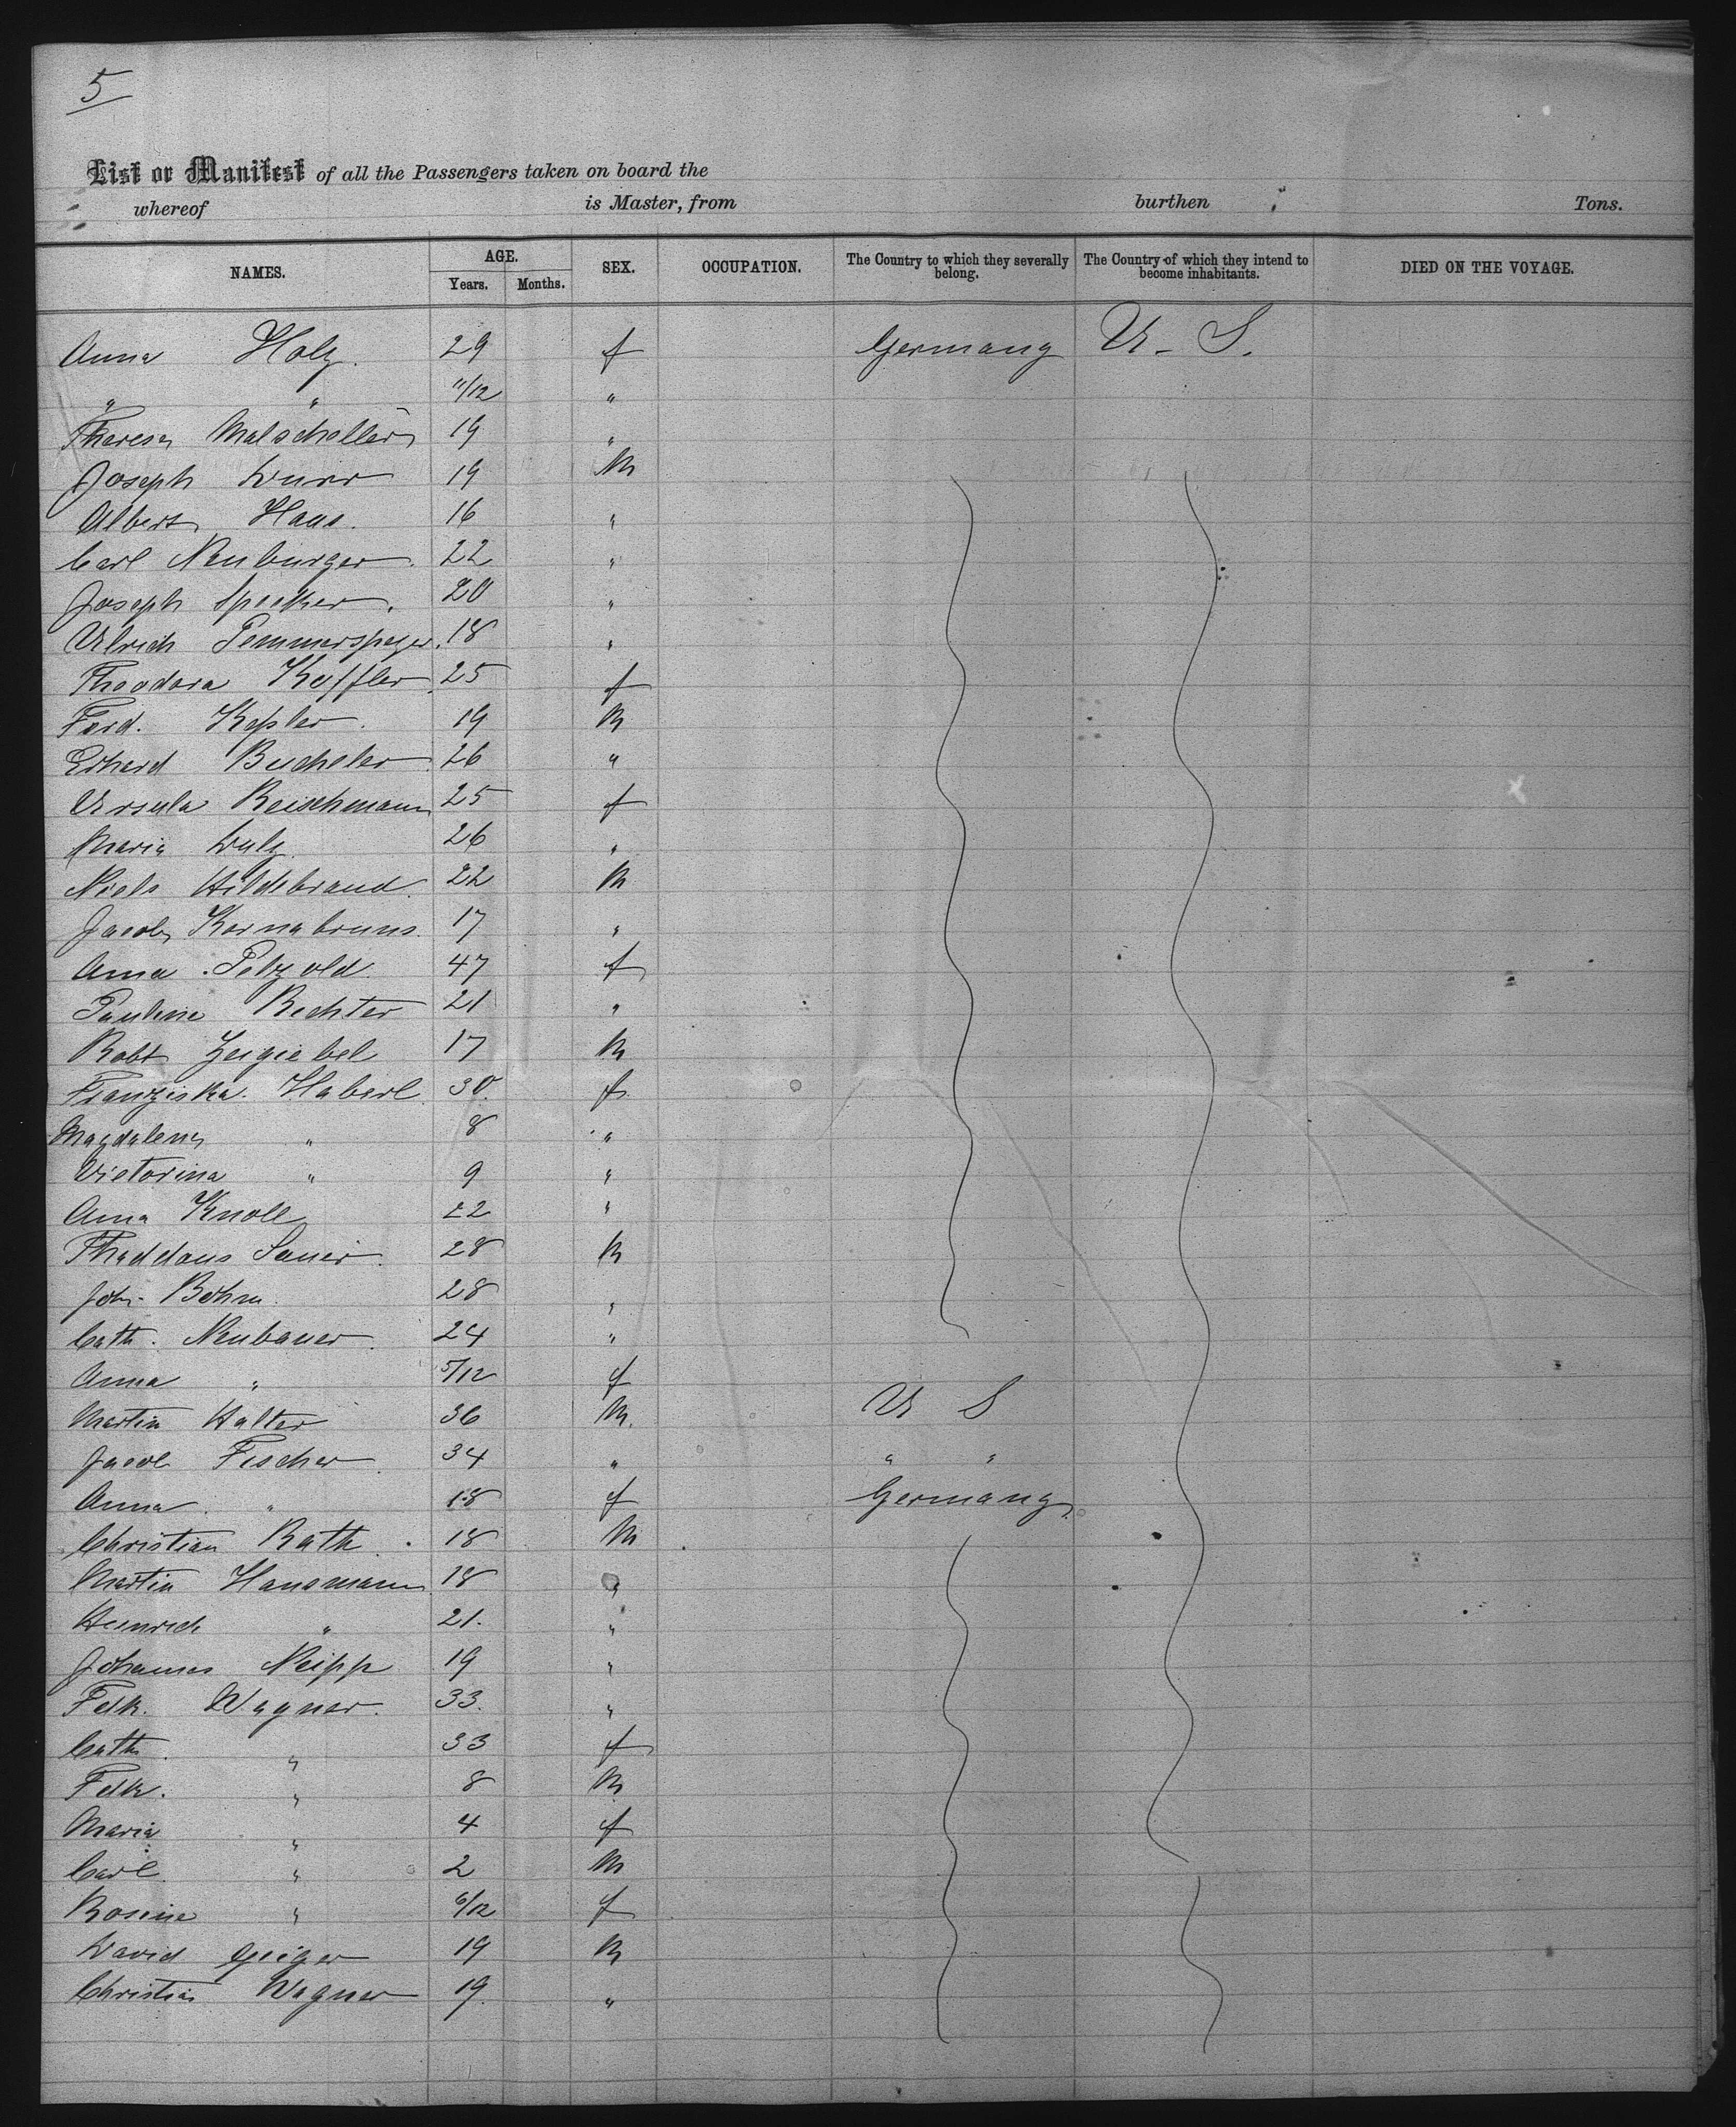 5
List or Manifest of all the Passengers taken on board the
whereof is Master, from burthen Tons.
NAMES. AGE. Years. Months. SEX. OCCUPATION. The Country to which they severally belong. The Country of which they intend to become inhabitants. DIED ON THE VOYAGE.
Anna Holz. 29 f Germany U. S.
" " 11/12 "
Theresa 19 "
Joseph Durr 19 M
Albert Haus. 16 "
Carl Neuburger. 22 "
Joseph Speeker. 20 "
Ulrich 18 "
Theodora Keffler 25 f
Ferd. Kepler. 19 M
Erhard Bucheler 26 "
Ursula Reischmann 25 f
Maria Dulz 26 "
Niels Hildebrand. 22 M
Jacob Kornabruns. 17 "
Anna Petzold 47 f
Pauline Rechter 21 "
Robt Zeigiebel 17 M
Franziska. Haberl 30. f
Magdalena " 8 "
Victorina " 9 "
Anna Knoll 22 "
Thaddaus Sauer. 28 M
Joh. Bohm. 28 "
Cath. Neubauer. 24 "
Anna " 5/12 f
Martin Halter 36 M. U S
Jacob Fischer 34 " " "
Anna. " 18 f Germany
Christian Rath. 18 M
Martin Hausmann 18 "
Heinrich " 21. "
Johannes Neipp 19 "
Fdk. Wagner. 33. "
Cath. " 33 f
Fdk. " 8 M
Maria " 4 f
Carl " 2 M
Rosine " 6/12 f
David Geiger 19 M
Christian Wagner 19. "